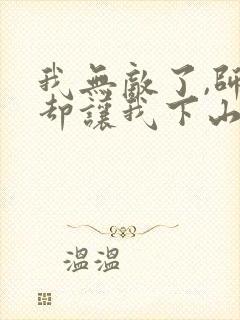 我無敵了,師
却讓我下山
溫溫